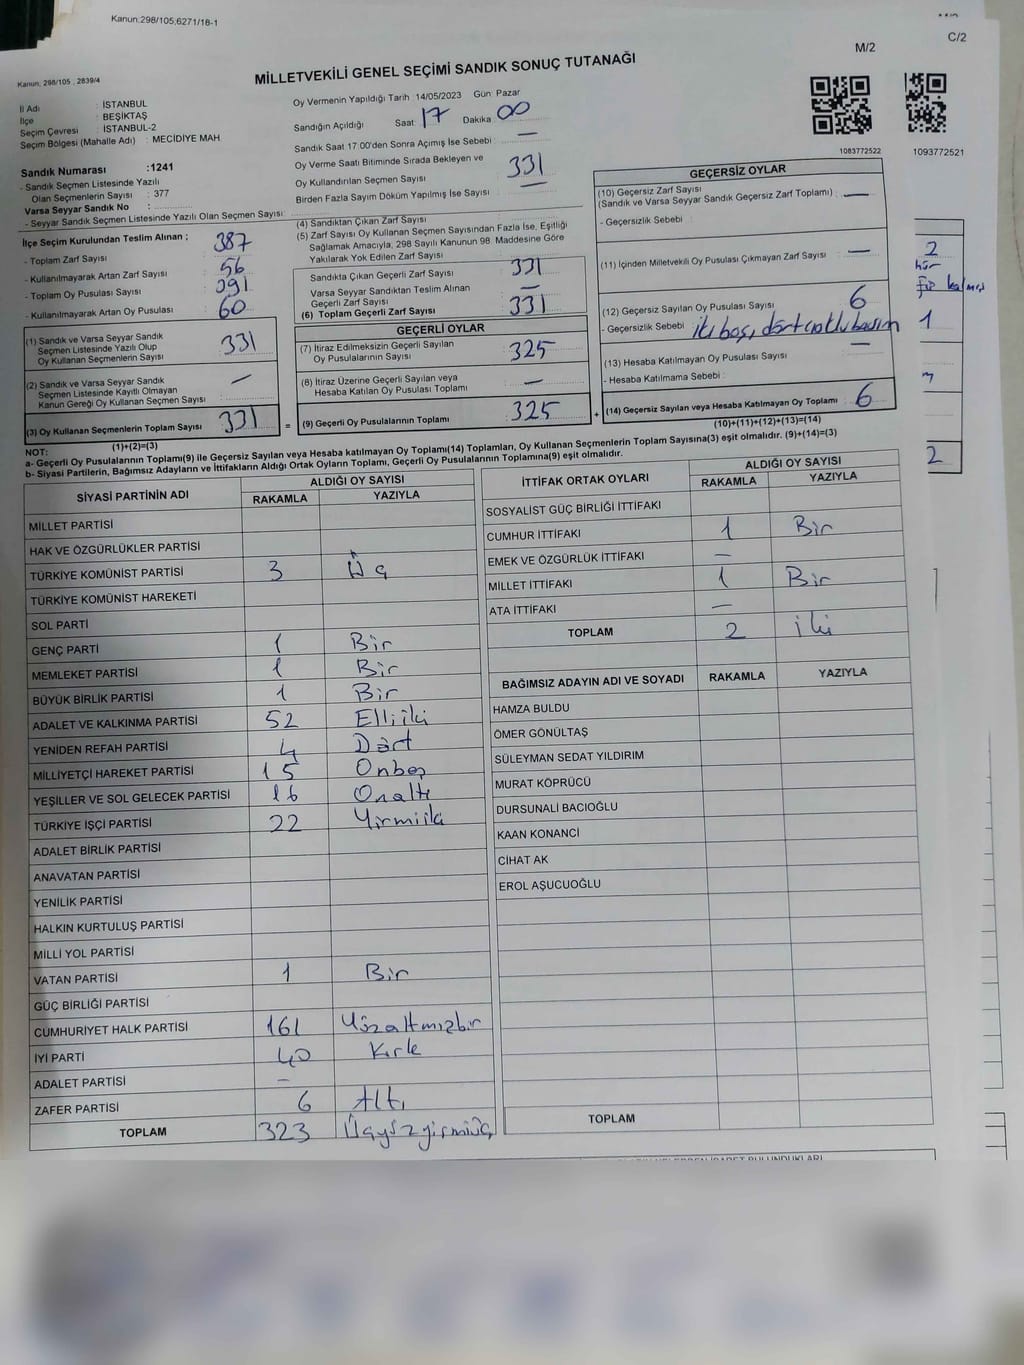 Kanun.298/105,6271/18-1
C/2
M/2
Kanun. 298/105 , 2839/4
MİLLETVEKİLİ GENEL SEÇİMİ SANDIK SONUÇ TUTANAĞI
İl Adı : İSTANBUL
İlçe : BEŞİKTAŞ
Seçim Çevresi : İSTANBUL-2
Seçim Bölgesi (Mahalle Adı) : MECİDİYE MAH.
Oy Vermenin Yapıldığı Tarih 14/05/2023 Gün: Pazar
Sandığın Açıldığı Saat: 17 Dakika 00
Sandık Saat 17:00'den Sonra Açımış İse Sebebi : —
Oy Verme Saati Bitiminde Sırada Bekleyen ve
Oy Kullandırılan Seçmen Sayısı 331
Birden Fazla Sayım Döküm Yapılmış İse Sayısı —
1083772522
1093772521
Sandık Numarası :1241
- Sandık Seçmen Listesinde Yazılı
Olan Seçmenlerin Sayısı : 377
Varsa Seyyar Sandık No :
- Seyyar Sandık Seçmen Listesinde Yazılı Olan Seçmen Sayısı:
İlçe Seçim Kurulundan Teslim Alınan ;
- Toplam Zarf Sayısı : 387
- Kullanılmayarak Artan Zarf Sayısı : 56
- Toplam Oy Pusulası Sayısı : 391
- Kullanılmayarak Artan Oy Pusulası : 60
(1) Sandık ve Varsa Seyyar Sandık
Seçmen Listesinde Yazılı Olup
Oy Kullanan Seçmenlerin Sayısı : 331
(2) Sandık ve Varsa Seyyar Sandık
Seçmen Listesinde Kayıtlı Olmayan
Kanun Gereği Oy Kullanan Seçmen Sayısı : —
(3) Oy Kullanan Seçmenlerin Toplam Sayısı 331
(1)+(2)=(3)
(4) Sandıktan Çıkan Zarf Sayısı
(5) Zarf Sayısı Oy Kullanan Seçmen Sayısından Fazla İse, Eşitliği
Sağlamak Amacıyla, 298 Sayılı Kanunun 98. Maddesine Göre
Yakılarak Yok Edilen Zarf Sayısı —
Sandıkta Çıkan Geçerli Zarf Sayısı : 331
Varsa Seyyar Sandıktan Teslim Alınan
Geçerli Zarf Sayısı : —
(6) Toplam Geçerli Zarf Sayısı : 331
GEÇERLİ OYLAR
(7) İtiraz Edilmeksizin Geçerli Sayılan
Oy Pusulalarının Sayısı : 325
(8) İtiraz Üzerine Geçerli Sayılan veya
Hesaba Katılan Oy Pusulası Toplamı —
= (9) Geçerli Oy Pusulalarının Toplamı : 325 +
GEÇERSİZ OYLAR
(10) Geçersiz Zarf Sayısı
(Sandık ve Varsa Seyyar Sandık Geçersiz Zarf Toplamı) : —
- Geçersizlik Sebebi :
(11) İçinden Milletvekili Oy Pusulası Çıkmayan Zarf Sayısı : —
(12) Geçersiz Sayılan Oy Pusulası Sayısı : 6
- Geçersizlik Sebebi iki boş, dört
(13) Hesaba Katılmayan Oy Pusulası Sayısı : —
- Hesaba Katılmama Sebebi :
(14) Geçersiz Sayılan veya Hesaba Katılmayan Oy Toplamı : 6
(10)+(11)+(12)+(13)=(14)
2
1
2
NOT:
a- Geçerli Oy Pusulalarının Toplamı(9) ile Geçersiz Sayılan veya Hesaba katılmayan Oy Toplamı(14) Toplamları, Oy Kullanan Seçmenlerin Toplam Sayısına(3) eşit olmalıdır. (9)+(14)=(3)
b- Siyasi Partilerin, Bağımsız Adayların ve İttifakların Aldığı Ortak Oyların Toplamı, Geçerli Oy Pusulalarının Toplamına(9) eşit olmalıdır.
SİYASİ PARTİNİN ADI ALDIĞI OY SAYISI
RAKAMLA YAZIYLA
MİLLET PARTİSİ
HAK VE ÖZGÜRLÜKLER PARTİSİ
TÜRKİYE KOMÜNİST PARTİSİ 3 Üç
TÜRKİYE KOMÜNİST HAREKETİ
SOL PARTİ
GENÇ PARTİ 1 Bir
MEMLEKET PARTİSİ 1 Bir
BÜYÜK BİRLİK PARTİSİ 1 Bir
ADALET VE KALKINMA PARTİSİ 52 Elliiki
YENİDEN REFAH PARTİSİ 4 Dört
MİLLİYETÇİ HAREKET PARTİSİ 15 Onbeş
YEŞİLLER VE SOL GELECEK PARTİSİ 16 Onaltı
TÜRKİYE İŞÇİ PARTİSİ 22 Yirmiiki
ADALET BİRLİK PARTİSİ
ANAVATAN PARTİSİ
YENİLİK PARTİSİ
HALKIN KURTULUŞ PARTİSİ
MİLLİ YOL PARTİSİ
VATAN PARTİSİ 1 Bir
GÜÇ BİRLİĞİ PARTİSİ
CUMHURİYET HALK PARTİSİ 161 Yüzaltmışbir
İYİ PARTİ 40 Kırk
ADALET PARTİSİ —
ZAFER PARTİSİ 6 Altı
TOPLAM 323 Üçyüzyirmiüç
İTTİFAK ORTAK OYLARI ALDIĞI OY SAYISI
RAKAMLA YAZIYLA
SOSYALİST GÜÇ BİRLİĞİ İTTİFAKI
CUMHUR İTTİFAKI 1 Bir
EMEK VE ÖZGÜRLÜK İTTİFAKI —
MİLLET İTTİFAKI 1 Bir
ATA İTTİFAKI —
TOPLAM 2 iki
BAĞIMSIZ ADAYIN ADI VE SOYADI RAKAMLA YAZIYLA
HAMZA BULDU
ÖMER GÖNÜLTAŞ
SÜLEYMAN SEDAT YILDIRIM
MURAT KÖPRÜCÜ
DURSUNALİ BACIOĞLU
KAAN KONANCİ
CİHAT AK
EROL AŞUCUOĞLU
TOPLAM